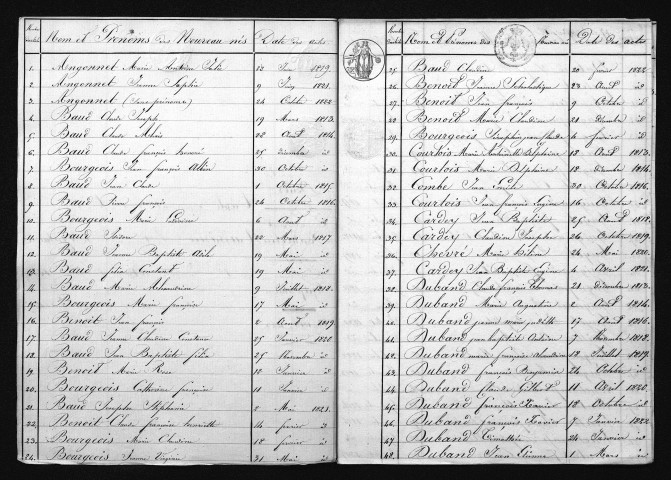 Nom et Prénoms des Nouveau nés Date des actes
1. Angonnet Marie 22 1819.
2. Angonnet Jeanne Sophie 9 Juin 1821.
3. Angonnet (sans prénoms) 24 Octobre 1822
4. Baud Claude Joseph 19 Mars 1813.
5. Baud Claude Aloïs 22 Avril 1814.
6. Baud Claude françois 25 décembre id
7. Bourgeois Jean françois 30 Octobre id
8. Baud Jean Claude 1 Octobre 1815
9. Baud Pierre françois 24 Octobre 1816.
10. Bourgeois Marie 6 Avril id
11. Baud 22 Mars 1817
12. Baud Jeanne Baptiste 19 Mai id
13. Baud félix Constant 19 Mai id
14. Baud Marie Alexandrine 9 Juillet 1818.
15. Bourgeois Marie françoise 17 Mai id
16. Benoit Jean françois 2 Avril 1819.
17. Baud Jeanne Claudine 25 Janvier 1820
18. Baud Jean Baptiste félix 25 Novembre id
19. Benoit Marie Rose 10 Janvier id
20. Bourgeois Catherine françoise 11 Janvier id
21. Baud Josephte Stéphanie 2 Mai 1821.
22. Benoit Claude françois 14 février id
23. Bourgeois Marie Claudine 18 février id
24. Bourgeois Jeanne 31 Mai id
Nom et Prénoms des Nouveau nés Date des actes
25. Baud Claudine 20 février 1822.
26. Benoit Jeanne Scholastique 23 Avril id
27. Benoit Jean françois 9 Octobre id
28. Benoit Marie Claudine 21 décembre id
29. Bourgeois Claude 6 février id
30. Courlois Marie Antoinette Delphine 12 Avril 1813.
31. Courlois Marie Delphine 18 décembre 1814.
32. Combe Jean 30 Octobre 1816.
33. Courlois Jean françois Eugène 16 Octobre id
34. Cardey Jean Baptiste 25 Avril 1818.
35. Cardey Claudine Josephte 26 Octobre 1819.
36. Chevré Marie 24 Mai 1820.
37. Cardey Jean Baptiste Eugène 4 Avril 1821.
38. Duband Claude françois 21 décembre 1813.
39. Duband Marie Augustine 2 Avril 1814.
40. Duband jeanne marie judith 17 Avril 1816.
41. Duband jean baptiste 7 Novembre 1818.
42. Duband marie françoise 18 Juillet 1819.
43. Duband françois 24 Octobre id
44. Duband 11 Avril 1820.
45. Duband françois Xavier 12 Octobre id
46. Duband françois Xavier 7 Janvier 1822.
47. Duband Timothée 24 Janvier id
48. Duband Jean Etienne 1 Mars id